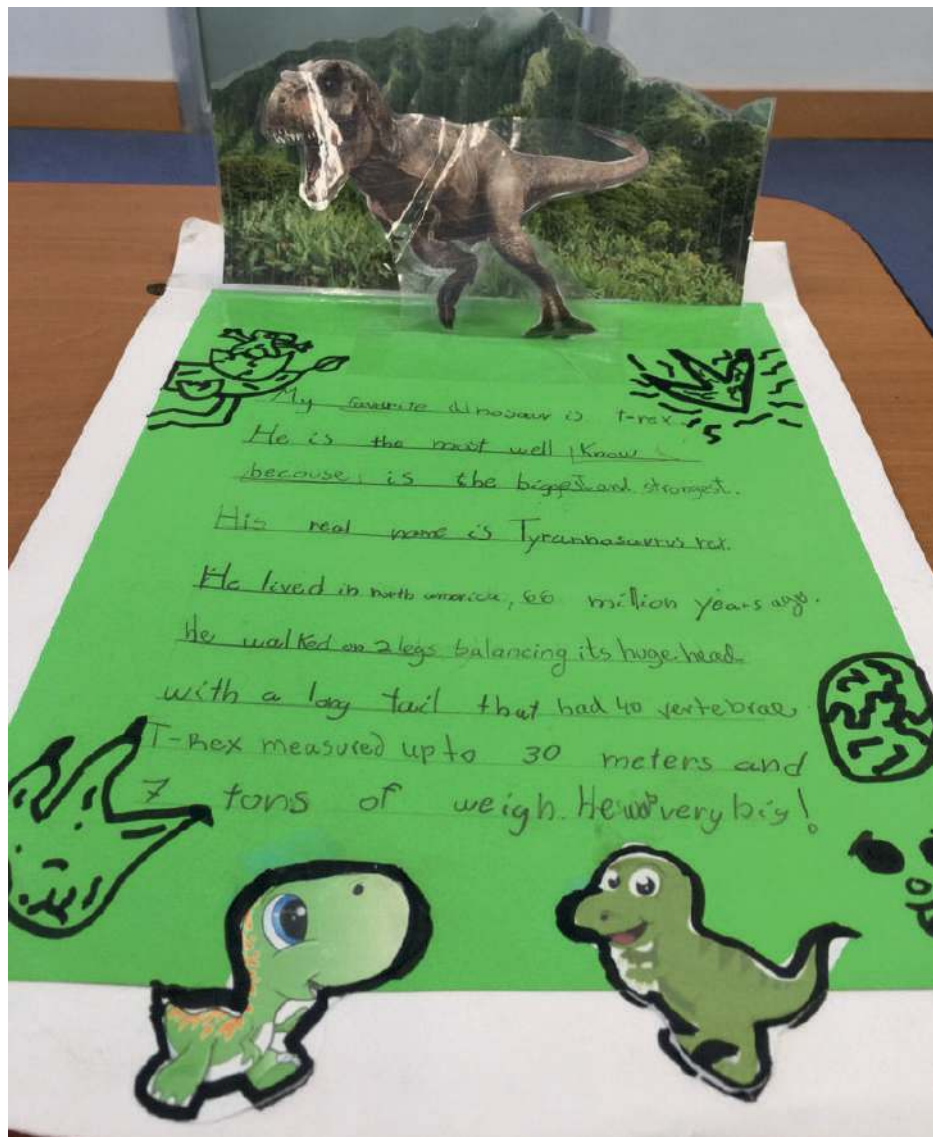 My favorite dinosaur is t-rex.
He is the most well Know
because is the biggest and strongest.
His real name is Tyrannosaurus rex.
He lived in north america, 66 million years ago.
He walked on 2 legs balancing its huge head
with a long tail that had 40 vertebrae
T-Rex measured up to 30 meters and
7 tons of weigh. He was very big!